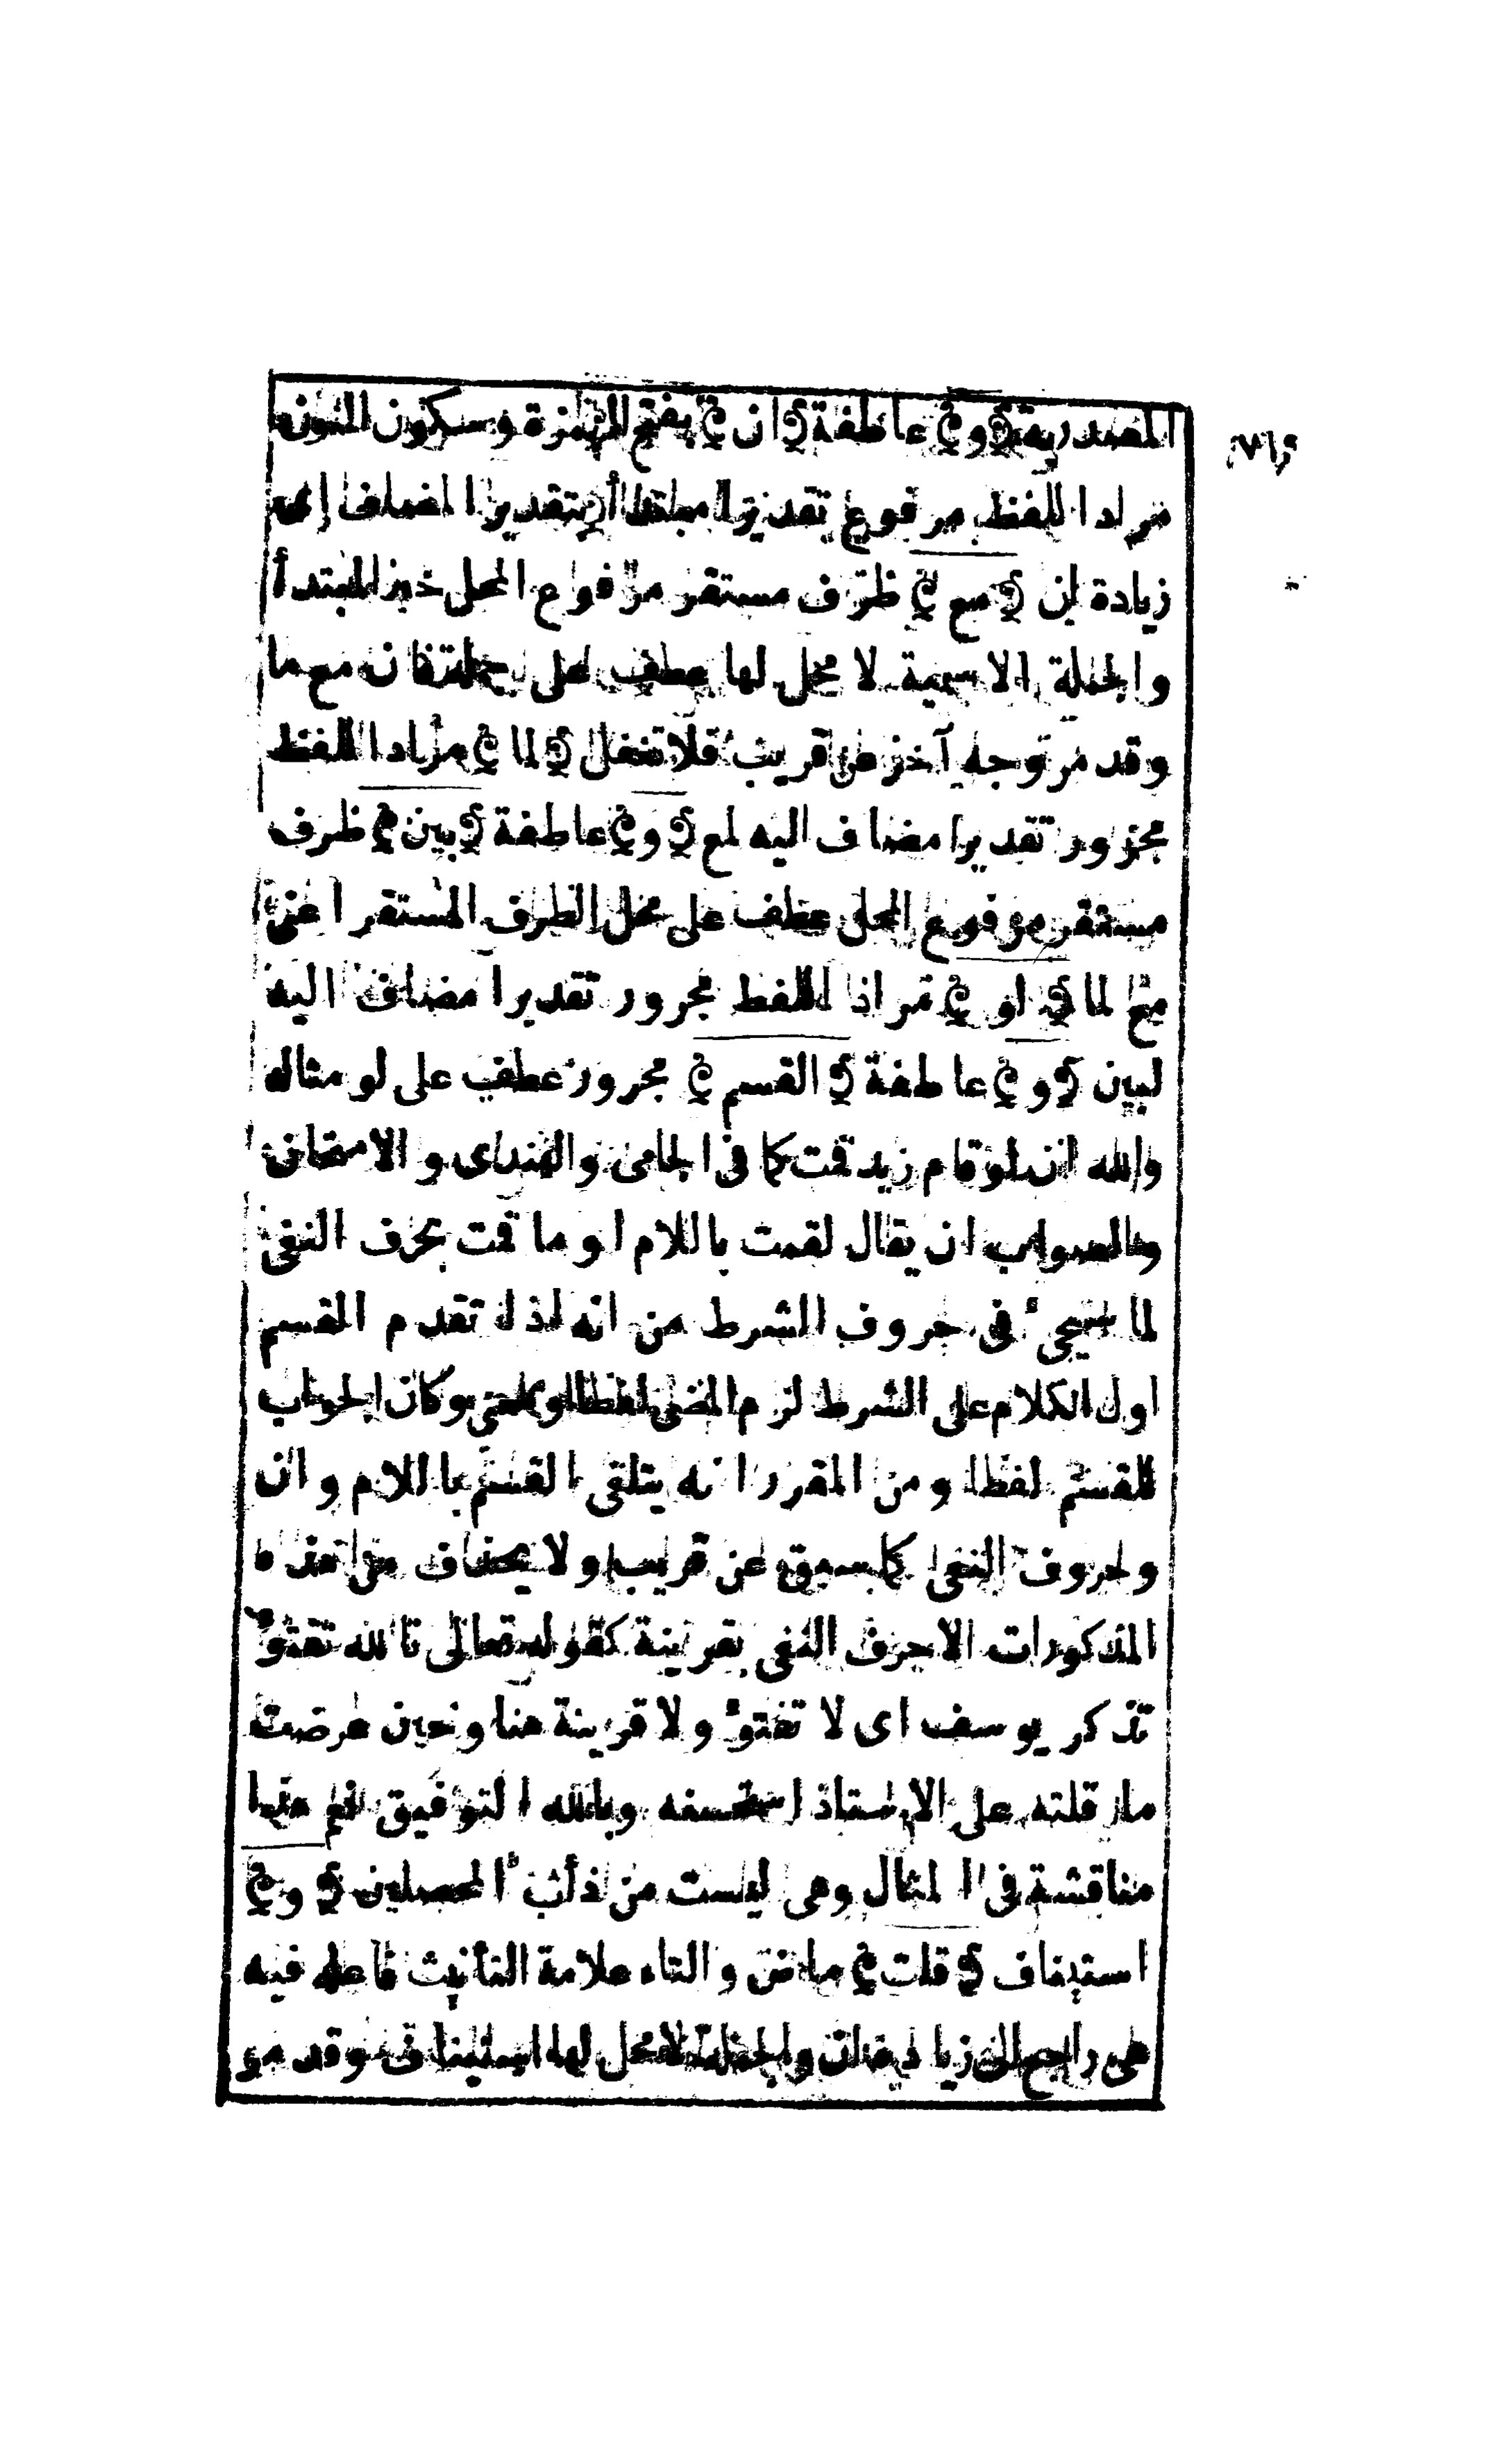 المصدرية ﴿و﴾ عاطفة ﴿ان﴾ بفتح الهمزة وسكون النون
مرادا اللفظ مرفوع تقديرا مبتدأ بتقدير المضاف إى
زيادة ان ﴿مع﴾ ظرف مستقر مرفوع المحل خبر المبتدأ
والجملة الاسمية لا محل لها عطف على جملة فان مع ما
وقد مر وجه آخر عن قريب فلا تغفل ﴿لما﴾ مرادا اللفظ
مجرور تقديرا مضاف اليه لمع ﴿و﴾ عاطفة ﴿بين﴾ ظرف
مستقر مرفوع المحل عطف على محل الظرف المستقر اعنى
مع لما ﴿لو﴾ مرادا اللفظ مجرور تقديرا مضاف اليه
لبين ﴿و﴾ عاطفة ﴿القسم﴾ مجرور عطف على لو مثاله
والله ان لو قام زيد قمت كما فى الجامى والهندى و الامتحان
والصواب ان يقال لقمت باللام او ما قمت بحرف النفى
لما سيجىء فى حروف الشرط من انه اذا تقدم القسم
اول الكلام على الشرط لزم المضى لفظا او معنى وكان الجواب
للقسم لفظا ومن المقرر انه يتلقى القسم باللام وان
وحروف النفى كما سبق عن قريب ولا يحذف من هذه
المذكورات الاحرف النفى بقرينة كقوله تعالى تالله تفتؤ
تذكر يوسف اى لا تفتؤ ولا قرينة هنا وحين عرضت
ما قلته على الاستاذ استحسنه وبالله التوفيق نعم هذا
مناقشة فى المثال وهى ليست من دأب المحصلين ﴿و﴾
استيناف ﴿قلت﴾ ماض والتاء علامة التأنيث فاعله فيه
هى راجع الى زيادة ان والجملة لا محل لها استيناف وقد مر